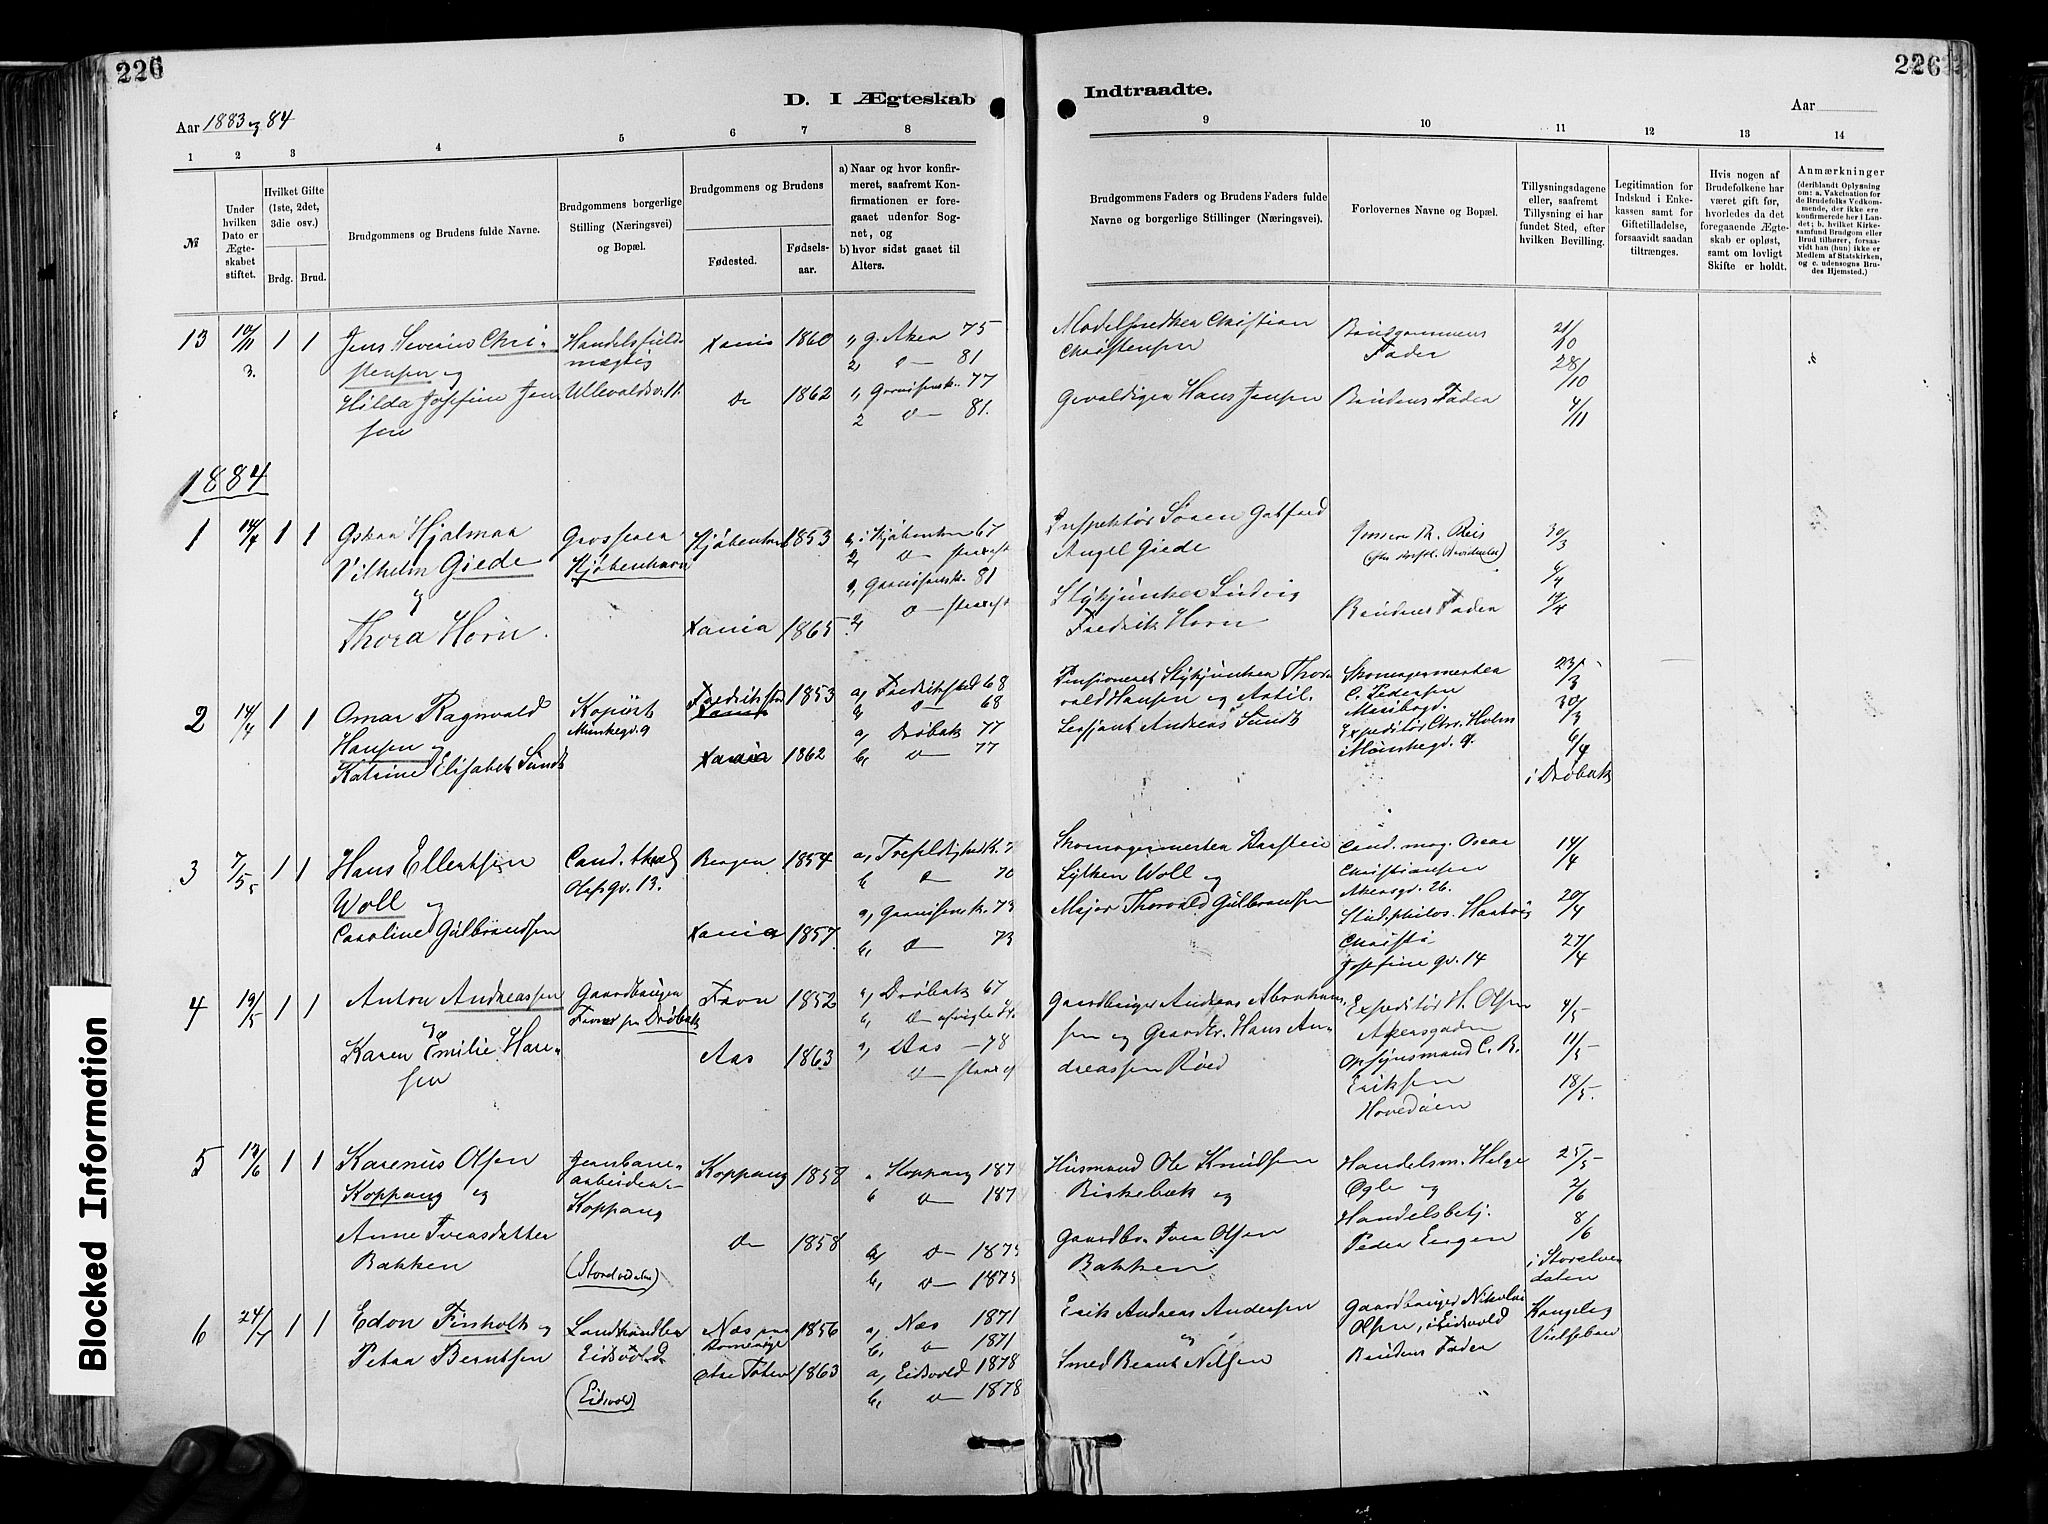 226
226
D. I Ægteskab
Indtraadte.
Aar 1883 og 84
Aar
1 2 3 4 5 6 7 8
9 10 11 12 13 14
№
Under hvilken Dato er Ægteskabet stiftet.
Hvilket Gifte (1ste, 2det, 3die osv.)
Brdg. Brud.
Brudgommens og Brudens fulde Navne.
Brudgommens borgerlige Stilling (Næringsvei) og Bopæl.
Brudgommens og Brudens
Fødested.
Fødsels-aar.
a) Naar og hvor konfir-
meret, saafremt Kon-
firmationen er fore-
gaaet udenfor Sog-
net, og
b) hvor sidst gaaet til
Alters.
Brudgommens Faders og Brudens Faders fulde
Navne og borgerlige Stillinger (Næringsvei).
Forlovernes Navne og Bopæl.
Tillysningsdagene
eller, saafremt
Tillysning ei har
fundet Sted, efter
hvilken Bevilling.
Legitimation for
Indskud i Enke-
kassen samt for
Giftetilladelse,
forsaavidt saadan
tiltrænges.
Hvis nogen af
Brudefolkene har
været gift før,
hvorledes da det
foregaaende Ægte-
skab er opløst,
samt om lovligt
Skifte er holdt.
Anmærkninger
(deriblandt Oplysning
om: a. Vakcination for
de Brudefolks Vedkom-
mende, der ikke ere
konfirmerede her i Lan-
det; b. hvilket Kirke-
samfund Brudgom eller
Brud tilhører, forsaa-
vidt han (hun) ikke er
Medlem af Statskirken,
og c. udensogns Bru-
des Hjemsted.)
13 10/11 1 1 Jens Severin Chri-
stensen og
Hilda Josefine Jen
sen
Handelsfuld
mægtig
Ullevoldsv. 11.
Xania 1860
Do 1862
g. Aker 75
81
Garnisonsk. 77
81.
Christian
Christensen
Hans Jensen
Brudgommens
Fader
Brudens Fader
21/10
28/10
4/11
1884
1 14/4 1 1 Oskar Hjalmar
Vilhelm Giede
og
Thora Horn.
Grosserer
Kjøbenhavn
Kjøbenhavn 1853
Xania 1865
a, i Kjøbenhavn 67
a, Garnisonsk. 81
Inspektør Søren Gotfred
Angel Giede
Stykjunker Ludvig
Fredrik Horn
Brudens Fader
30/3
6/4
14/4
2 14/4 1 1 Omar Ragnvald
Hansen og
Katrine Elisabet Sundt
Kopiist
Munkegd. 9
Fredrikstad 1853
Xania 1862
a, Fredriksted 68
68
a, Drøbak 77
b, 77
Pensioneret Stykjunker Thor
vald Hansen og Artil.
Sersjant Andreas Sundt
Skomagermester
C. Pedersen
Expeditør Chr. Holm
Munkegd. 9.
23/3
30/3
6/4
i Drøbak
3 7/5 1 1 Hans Ellertsen
Woll og
Caroline Gulbrandsen
Cand. theol
Olafsgd. 13.
Bergen 1854
Xania 1857
a, Trefoldighedsk.
70
a, Garnisonsk. 73
b, 73
Skomagermester
Lytken Woll og
Major Thorvald Gulbrandsen
Cand. mag. Oscar
Christiansen
Akersgd. 26.
Stud. philos. Hartvig
Christi-
Josefine gd. 14
14/4
20/4
27/4
4 19/5 1 1 Anton Andreassen
og
Karen Emilie Han-
sen
Gaardbruger
Drøbak
Frovn 1852
Aas 1863
a, Drøbak 67
a, Aas — 78
Gaardbruger Andreas Abraham
sen og Gaardbr. Hans An-
dreassen Røed
Expeditør H. Olsen
Akersgaden
Opsynsmand C. B.
Eriksen
Hovedøen
4/5
11/5
18/5
5 13/6 1 1 Karenus Olsen
Koppang og
Anne Iversdatter
Bakken
Jernbane-
arbeider
Koppang
(Storelvedalen)
Koppang 1858
Do 1858
Koppang 187
187
a, 1875
b, 1875
Husmand Ole Knudsen
Birkebæk og
Gaardbr. Iver Olsen
Bakken
Handelsm. Helge
Ogle og
Handelsbetj.
Peder Engen
25/5
2/6
8/6
i Storelve
dalen
6 24/7 1 1 Edon Finholt og
Petra Berntsen
Landhandler
Eidsvold
(Eidsvold)
Næs paa
Romerige 1856
Toten 1863
a, Næs 1871
b, 1871
a, Eidsvold 1878
b, 1878
Erik Andreas Andersen
og
Smed Bernt Nilsen
Gaardbruger Nikolai
Olsen, i Eidsvold
Brudens Fader
Kongelig
Vielsebrev
Blocked Information